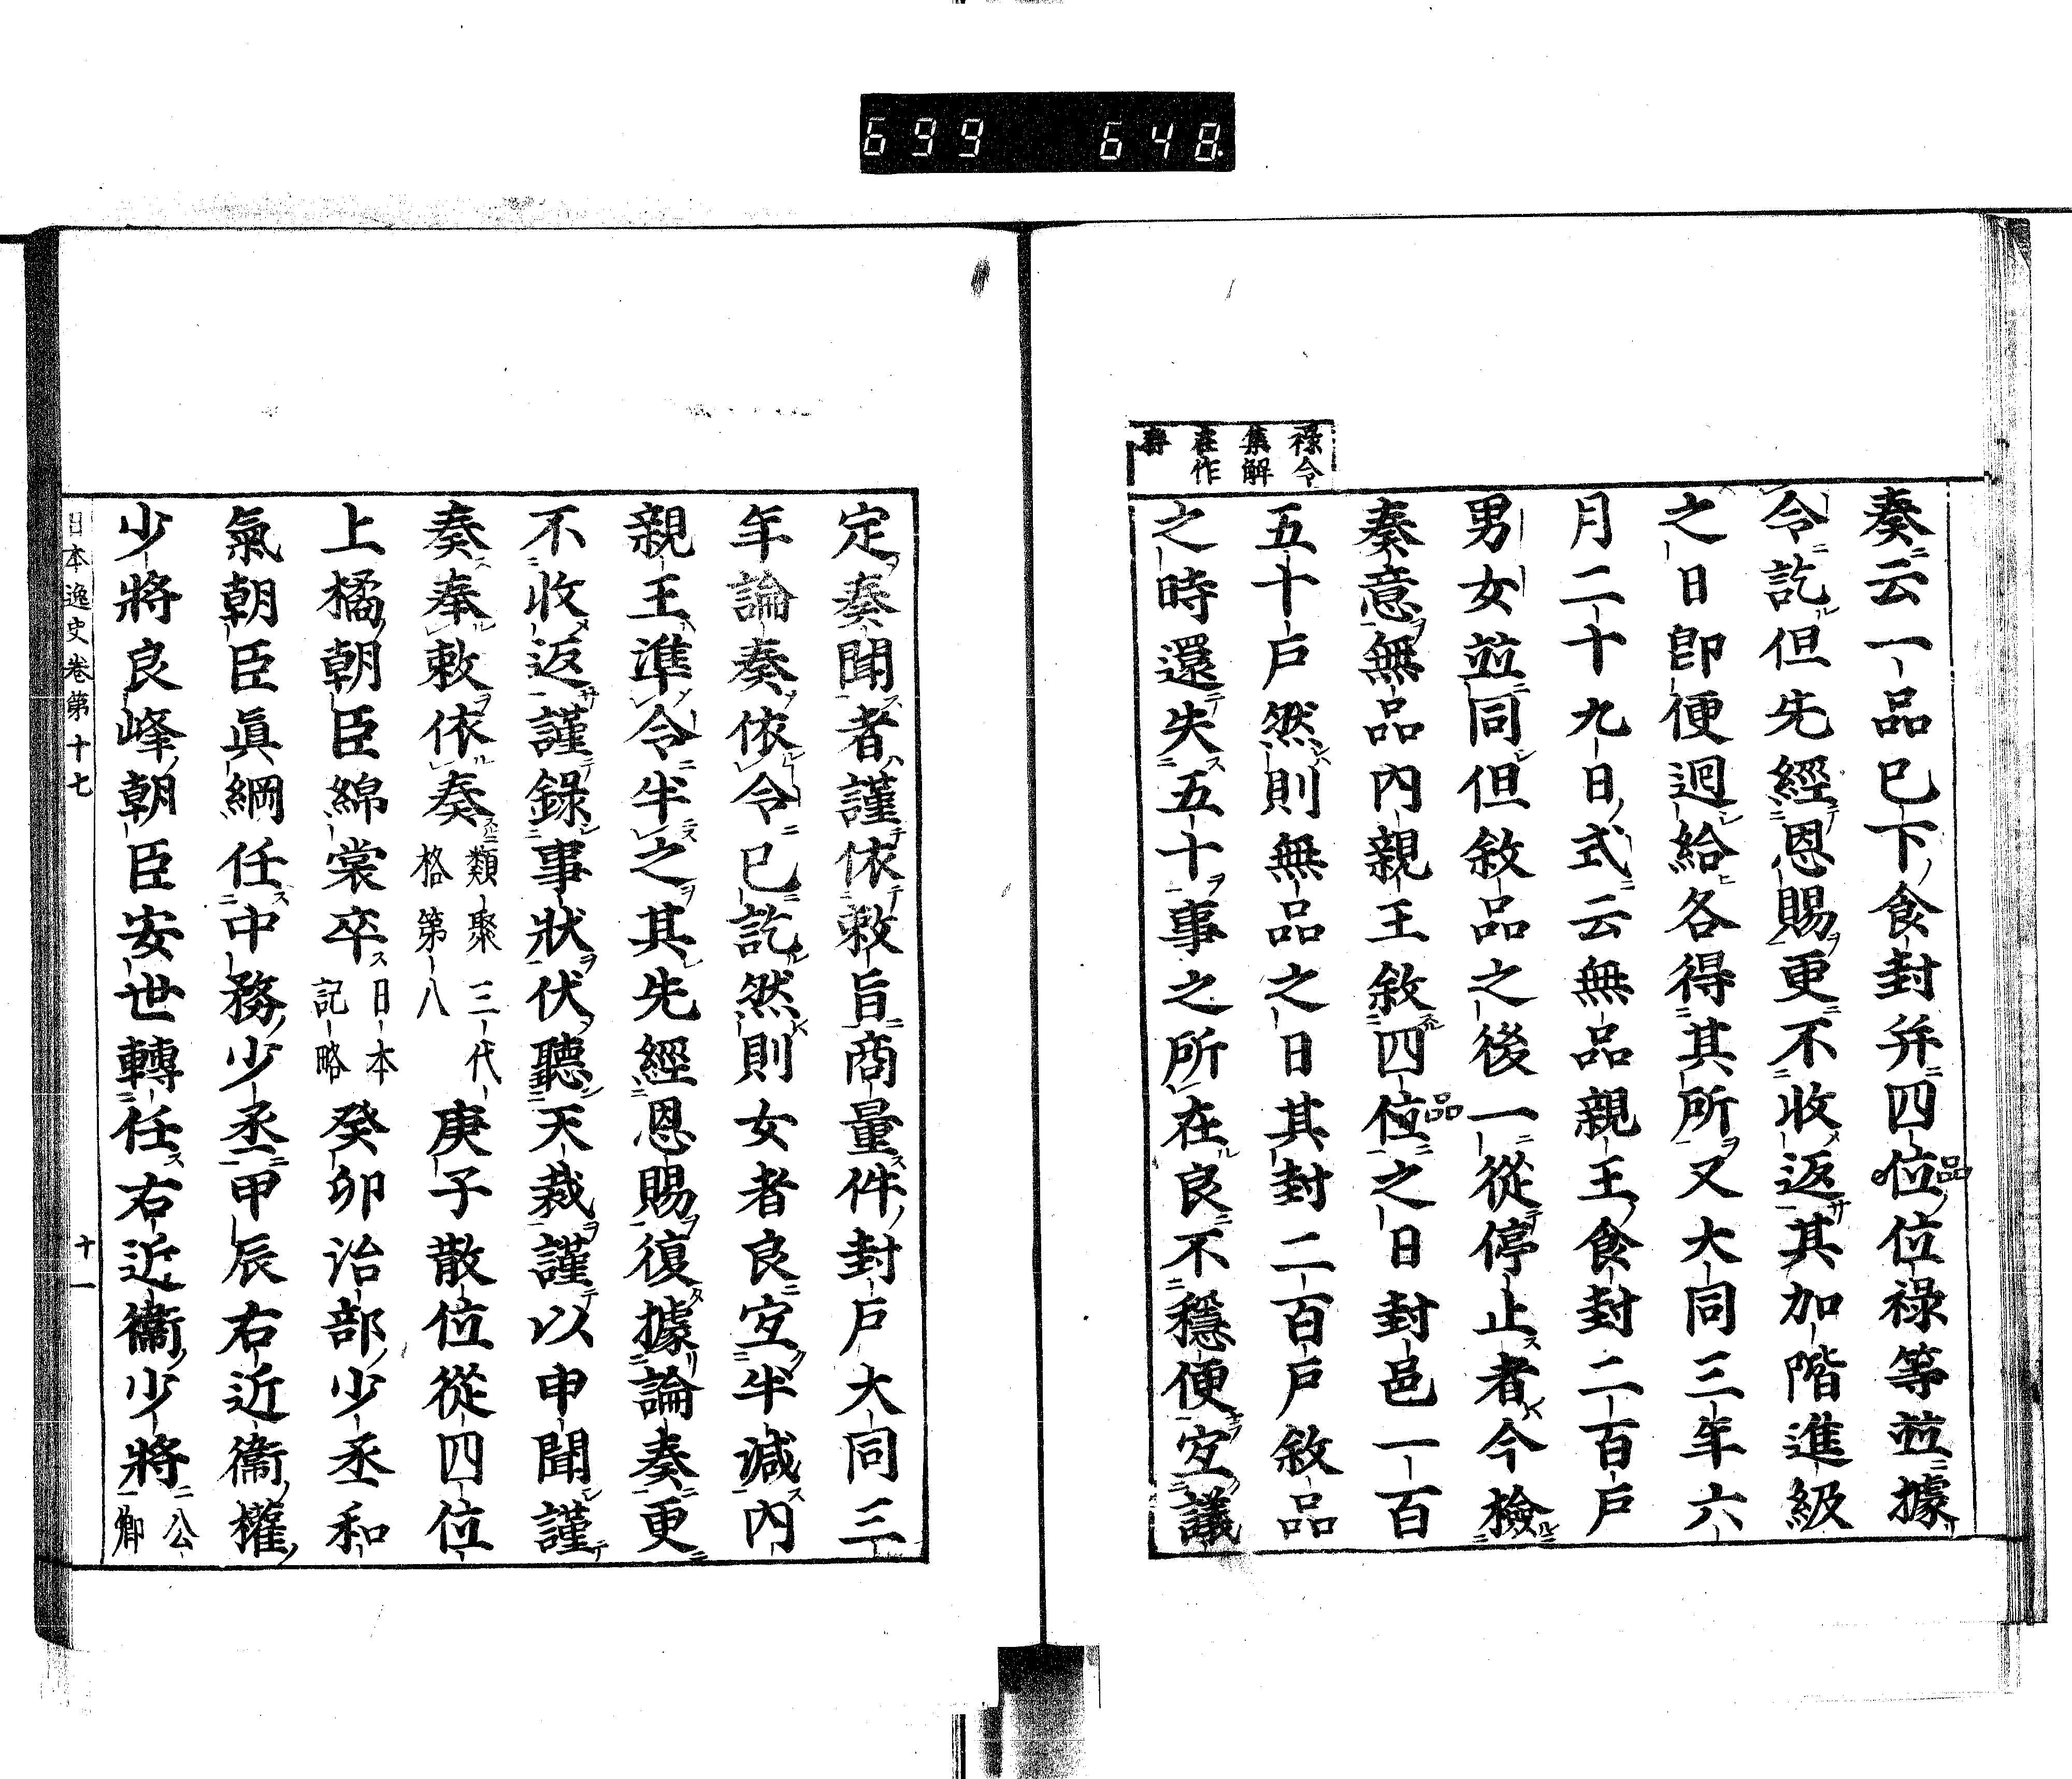 699 648
禄令
集解
在作
奏云一品已下食封并四位品位禄等並據
令訖但先經恩賜更不收返其加階進級
之日卽便迴給各得其所又大同三年六
月二十九日式云無品親王食封二百戶
男女並同但敘品之後一從停止者今檢
奏意無品內親王敘四位品之日封邑一百
五十戶然則無品之日其封二百戶敘品
之時還失五十事之所在良不穩便宜議
定奏聞者謹依敕旨商量件封戶大同三
年論奏依令已訖然則女者良宜半減內
親王準令半之其先經恩賜復據論奏更
不收返謹錄事狀伏聽天裁謹以申聞謹
奏奉敕依奏類聚三代
格第八庚子散位從四位
上橘朝臣綿裳卒日本
記略癸卯治部少丞和
氣朝臣眞綱任中務少丞甲辰右近衞權
少將良峰朝臣安世轉任右近衞少將公
卿
日本逸史卷第十七 十一